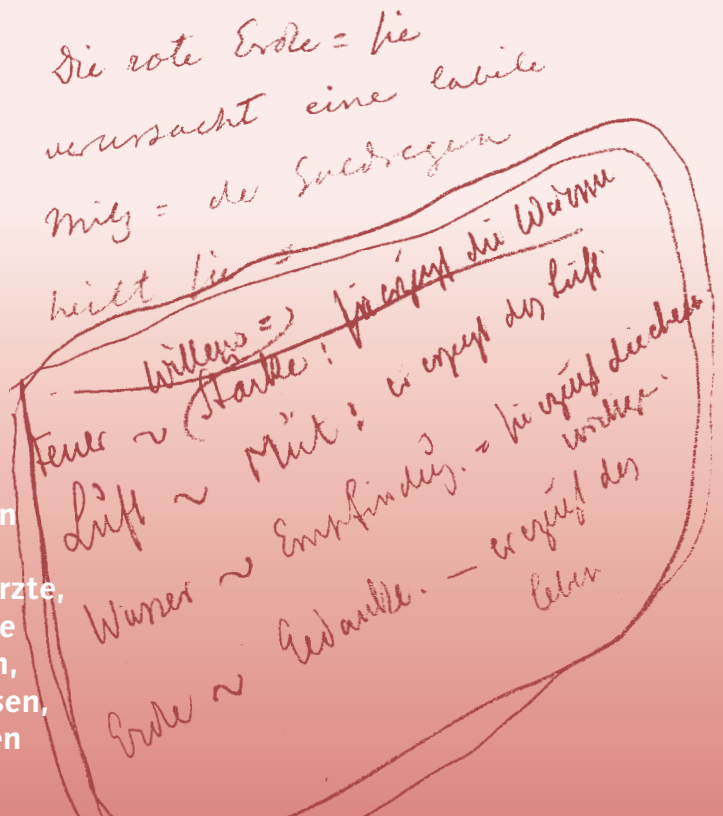 Die rote Erde = sie
verursacht eine labile
Milz = de Goldregen
heilt sie =
Willens =>
Feuer ~ Stärke : sie erzeugt die Wärme
Lüft ~ Müt : er erzeugt das Lüft
Wasser ~ Empfindüg. = sie erzeugt die chem
wirkger.
Erde ~ Gedanke. — er erzeügt das
leben
n
rzte,
e
n,
sen,
en